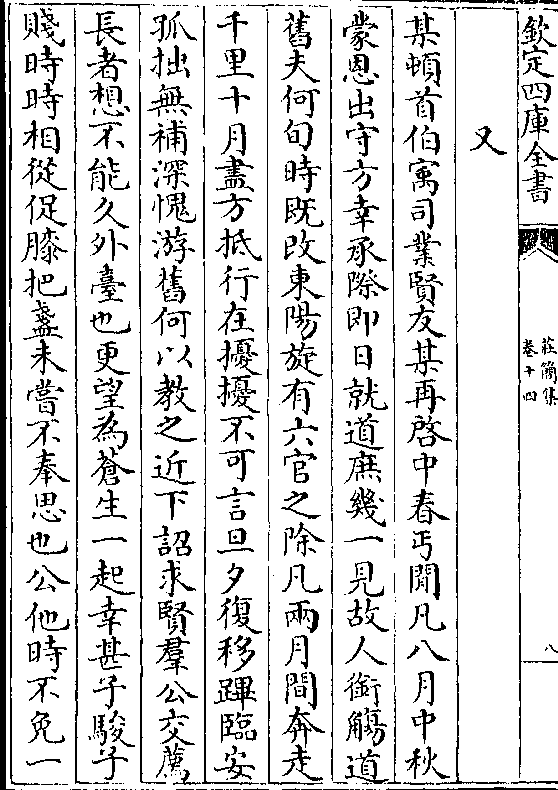 欽定四庫全書
莊簡集
卷十四
八
又
某頓首伯寓司業賢友某再啓中春丐閒凡八月中秋
蒙恩出守方幸承際即日就道庶幾一見故人銜觴道
舊夫何旬時既改東陽旋有六官之除凡兩月間奔走
千里十月盡方抵行在擾擾不可言旦夕復移蹕臨安
孤拙無補深愧游舊何以教之近下詔求賢羣公交薦
長者想不能久外臺也更望為蒼生一起幸甚子駿子
賤時時相從促膝把盞未嘗不奉思也公他時不免一